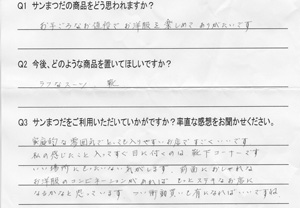 Q1 サンまつだの商品をどう思われますか？
お手ごろなお値段でお洋服を楽しめてありがたいです
Q2 今後、どのような商品を置いてほしいですか？
ラフなスーツ 靴
Q3 サンまつだをご利用いただいていかがですか？率直な感想をお聞かせください。
家庭的な雰囲気でとっても入りやすいお店ですごくいいです
私の感じたこと 入ってすぐ目に付くのは靴下コーナーです
いい場所にもったいない気がします。前面におしゃれな
お洋服のコンビネーションがあれば もっとステキなお店に
なるかなと思っています つい衝動買いも有になればいいですね